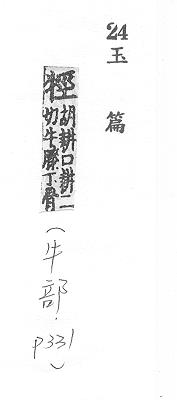 24
玉篇
牼 胡耕口耕二
切牛膝下骨
(牛部.
p331)